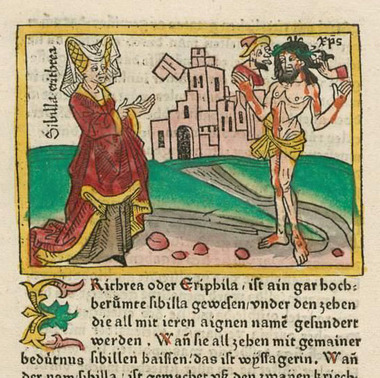 Sibilla erithrea
xps
Richrea oder Eriphila / ist ain gar hoch-
berůmte sibilla gewesen / vnder den zehen
die all mit ieren aignen namē gesundert
werden . Wañ sie all zehen mit gemainer
bedütnus sibillen haissen / das ist wyſsagerin . Wañ
der nam sibilla / ist gemachet vß den zwaÿen kriech-